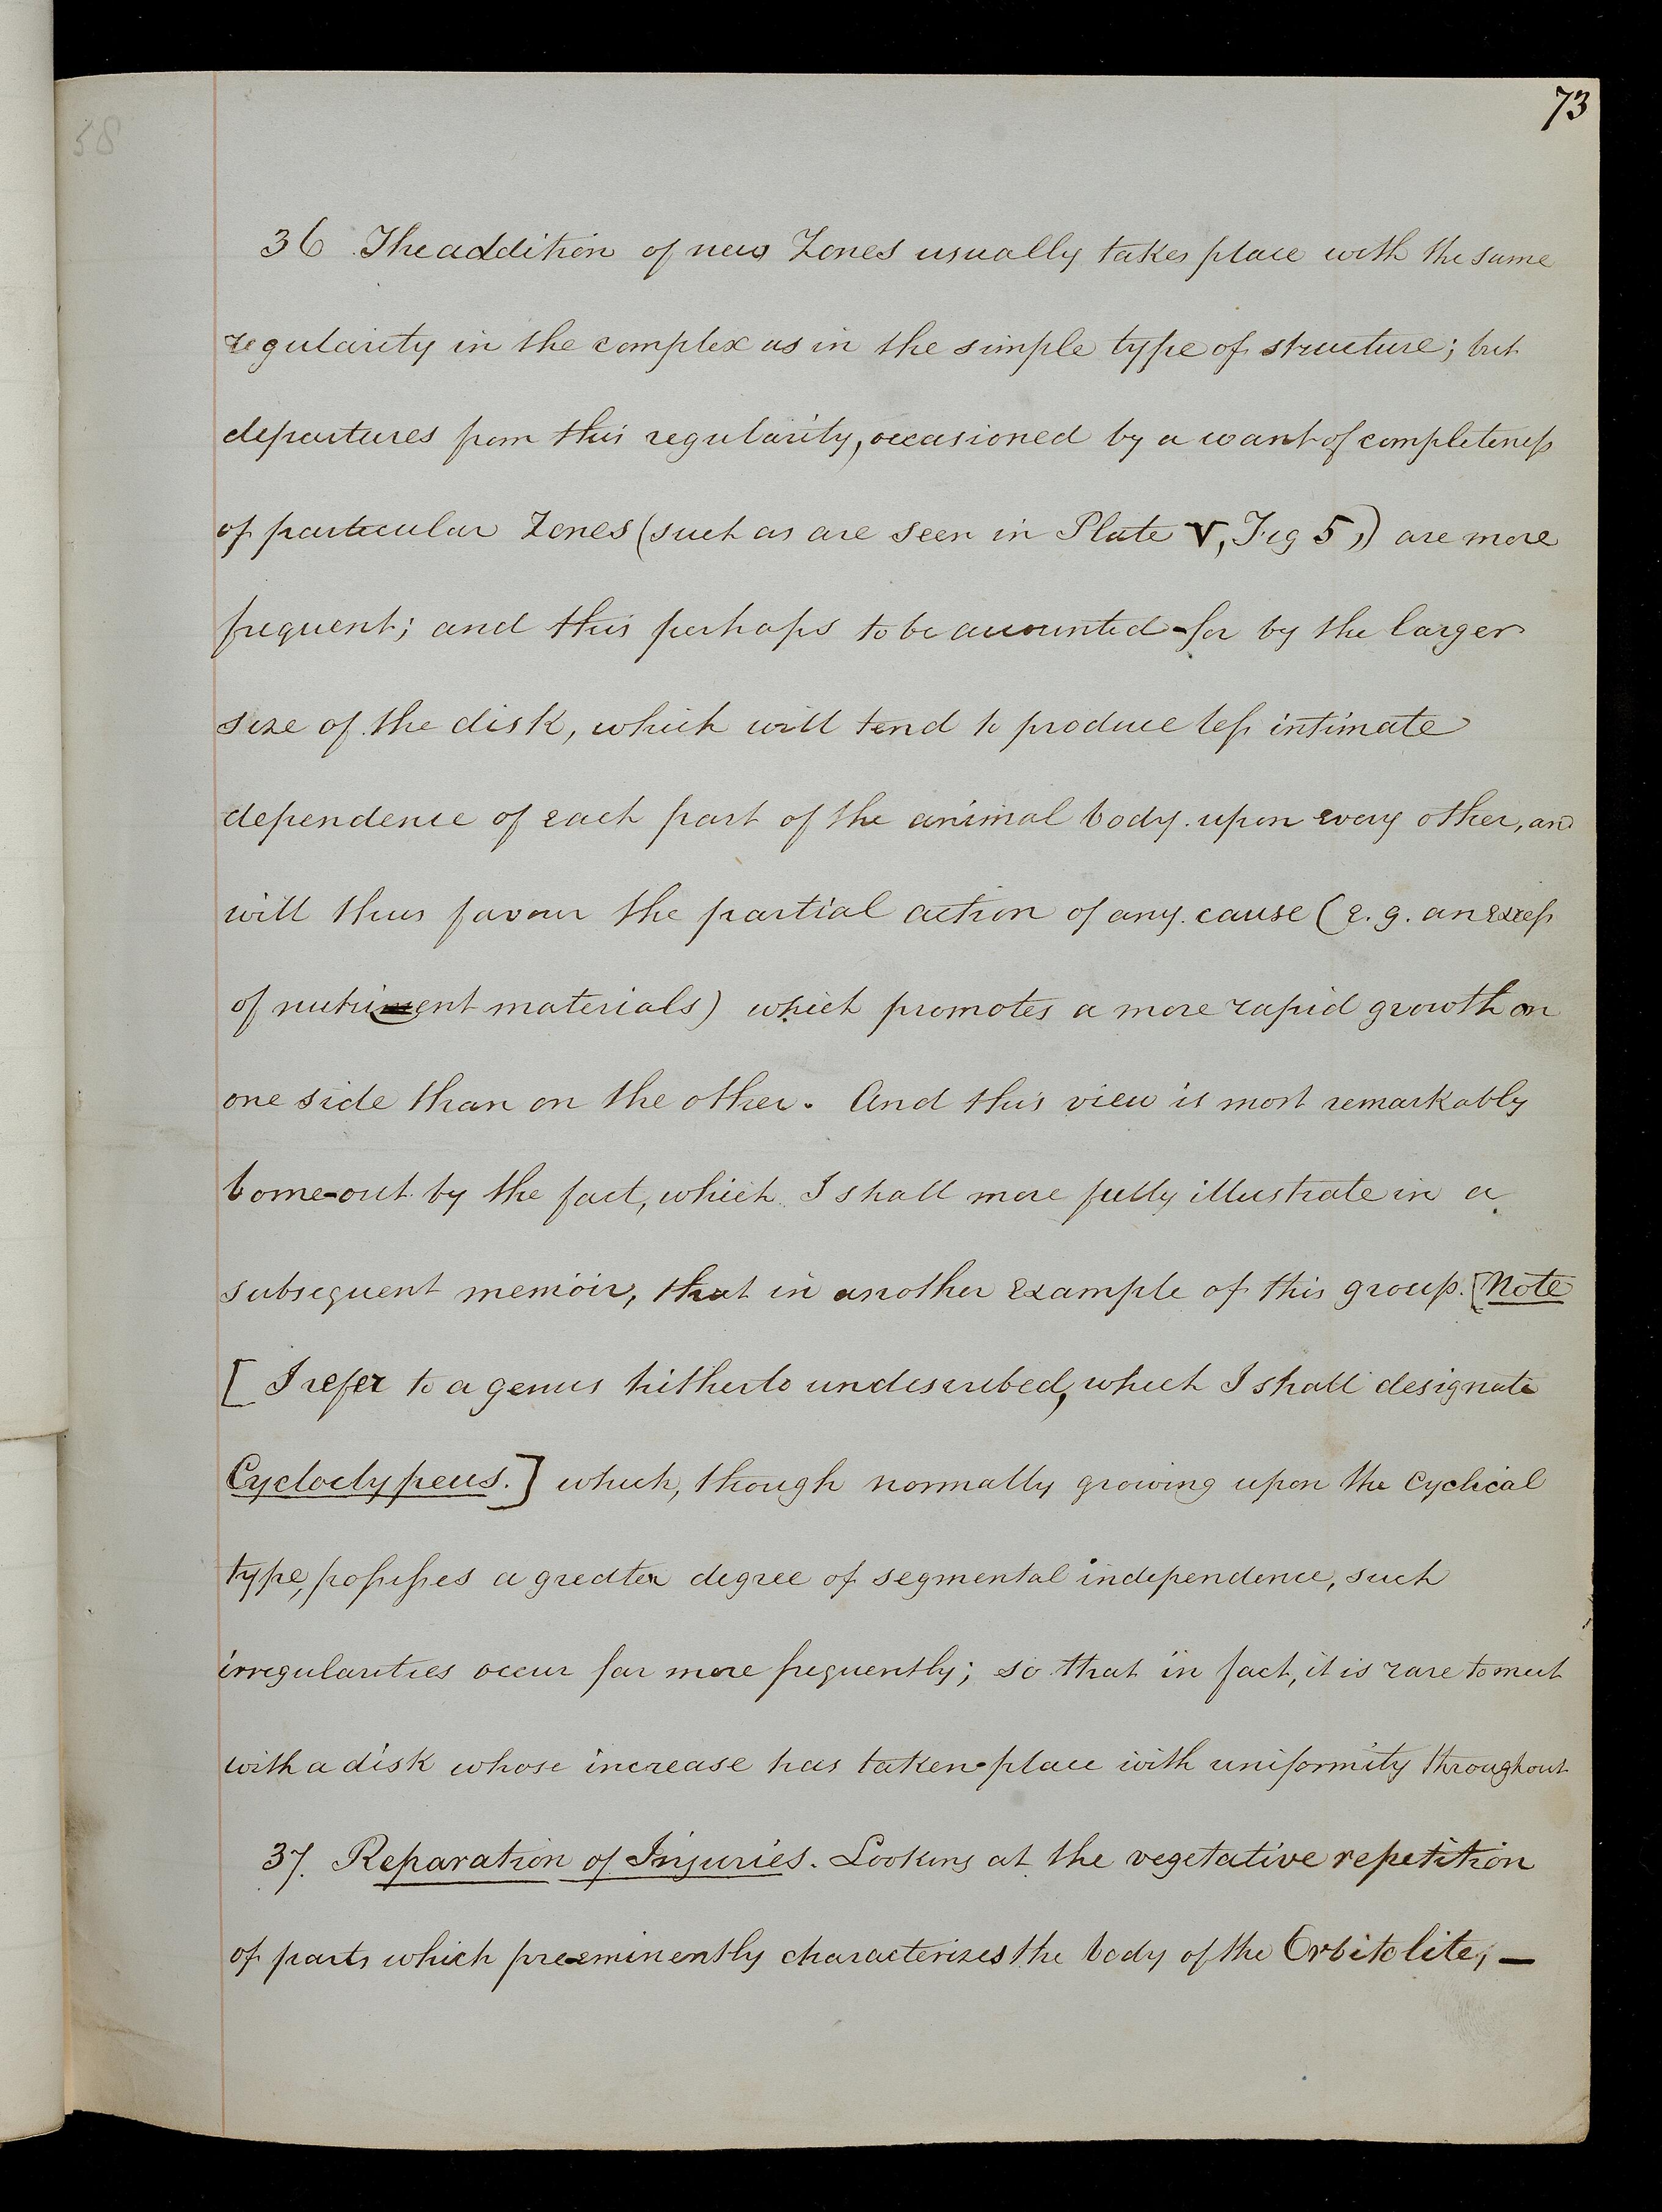 73
58
36 The addition of new Zones usually takes place with the same
regularity in the complex as in the simple type of structure; but
departures from this regularity, occasioned by a want of completeness
of particular Zones (such as are seen in Plate V, Fig 5,) are more
frequent; and this perhaps to be accounted-for by the larger
size of the disk, which will tend to produce less intimate
dependence of each part of the animal body upon every other, and
will thus favour the partial action of any cause (e.g. an excess
of nutrient materials) which promotes a more rapid growth on
one side than on the other. And this view is most remarkably
borne-out by the fact, which I shall more fully illustrate in a
subsequent memoir, that in another example of this group. [Note
[ I refer to a genus hitherto undescribed, which I shall designate
Cycloclypeus.] which, though normally growing upon the cyclical
type, possesses a greater degree of segmental independence, such
irregularities occur far more frequently; so that in fact, it is rare to meet
with a disk whose increase has taken-place with uniformity throughout
37. Reparation of Injuries. Looking at the vegetative repetition
of parts which pre-eminently characterizes the body of the Orbitolite, —